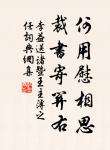 何用慰相思
裁書寄關右
李益送諸暨王主簿之
任詞典網集